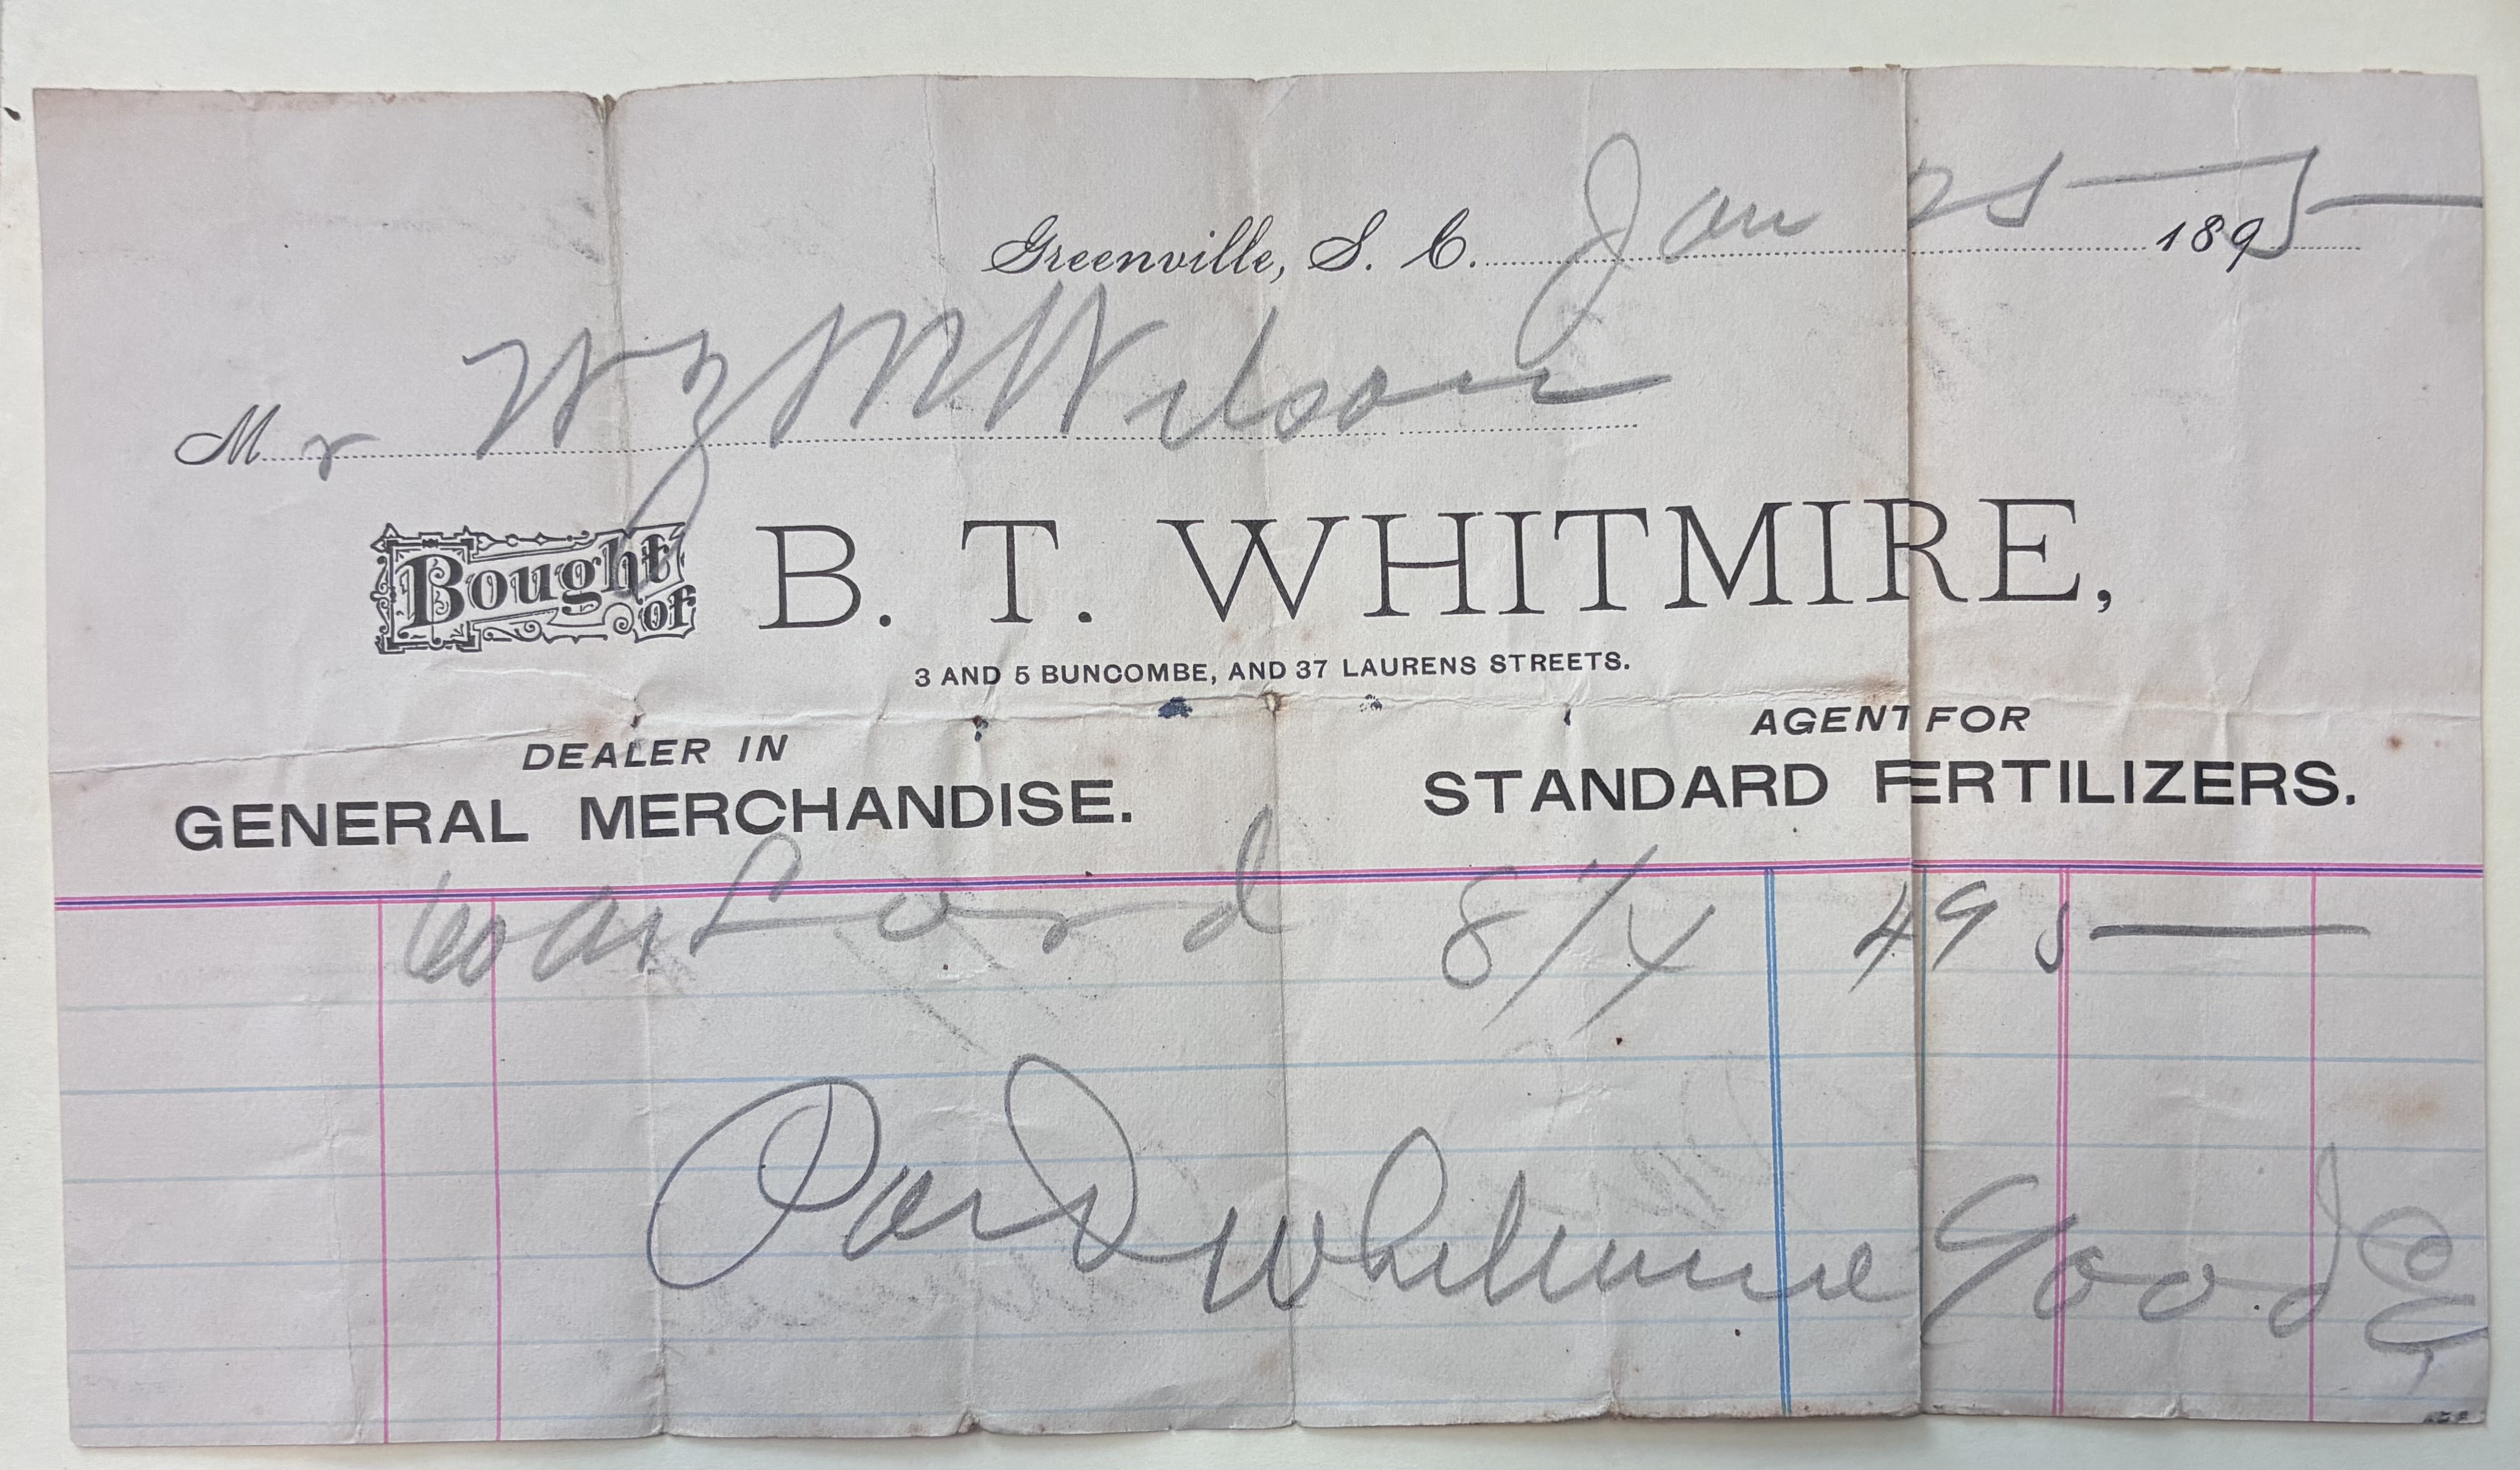 Greenville, S. C. Jan 25 1895
Mr W y M Wilson
Bought of B. T. WHITMIRE,
3 AND 5 BUNCOMBE, AND 37 LAURENS STREETS.
DEALER IN
GENERAL MERCHANDISE.
AGENT FOR
STANDARD FERTILIZERS.
Cord 8/4 495
Paid Whitmire Good